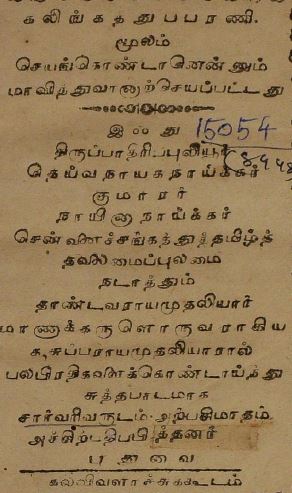 கலிங்கத்துபபரணி.
மூலம்
செயங்கொண்டானென்னும்
மாவித்துவானாற்செயப்பட்டது
இஃது
15054
திருப்பாதிரிப்புலியூர்
தெய்வநாயகநாய்க்கர்
குமாரர்
நாயினாநாய்க்கர்
சென்னைச்சங்கத்துத்தமிழ்த்
தலைமைப்புலமை
நடாத்தும்
தாண்டவராயமுதலியார்
மாணாக்கருளொருவராகிய
சுப்பராயமுதலியாரால்
பலபிரதிகளைக்கொண்டாய்ந்து
சுத்தபாடமாக
சார்வரிவருடம்-அற்பசிமாதம்
அச்சிற்பதிப்பித்தனர்
புதுவை
கல்விவளாச்சுக்கூடம்